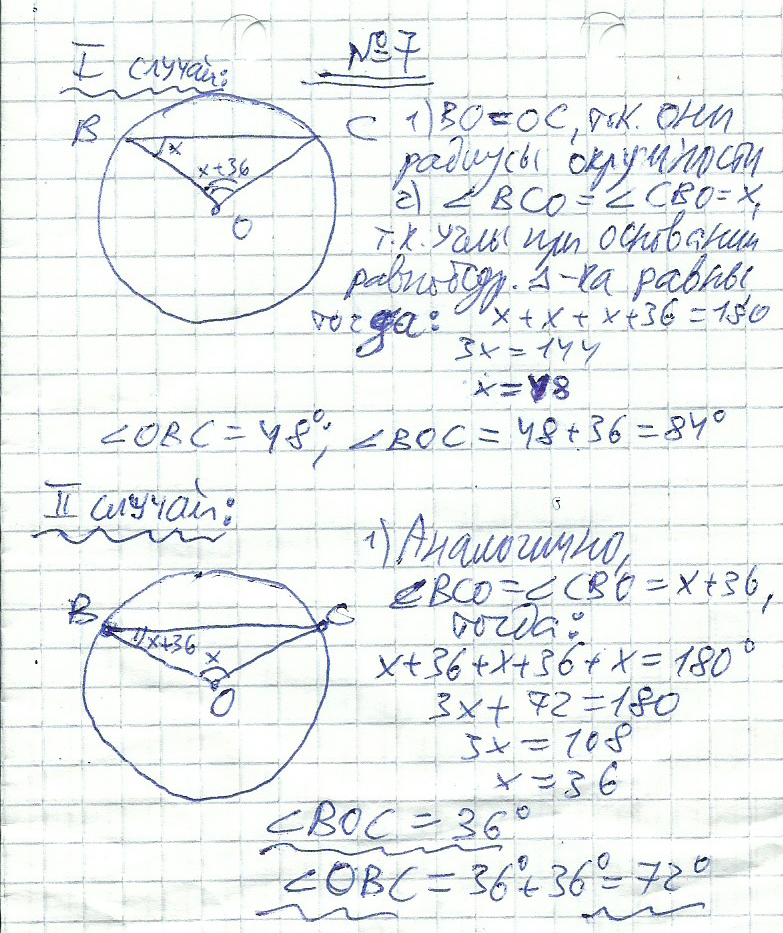 №7
I случай:
B C O x x+36
1) BO=OC, т.к. они
радиусы окружности
2) ∠BCO=∠CBO=x,
т.к. углы при основании
равнобедр. Δ-ка равны
тогда: x+x+x+36=180
3x=144
x=48
∠OBC=48°; ∠BOC=48+36=84°
II случай:
B C O x+36 x
1) Аналогично,
∠BCO=∠CBO=x+36,
тогда:
x+36+x+36+x=180°
3x+72=180
3x=108
x=36
∠BOC=36°
∠OBC=36°+36°=72°